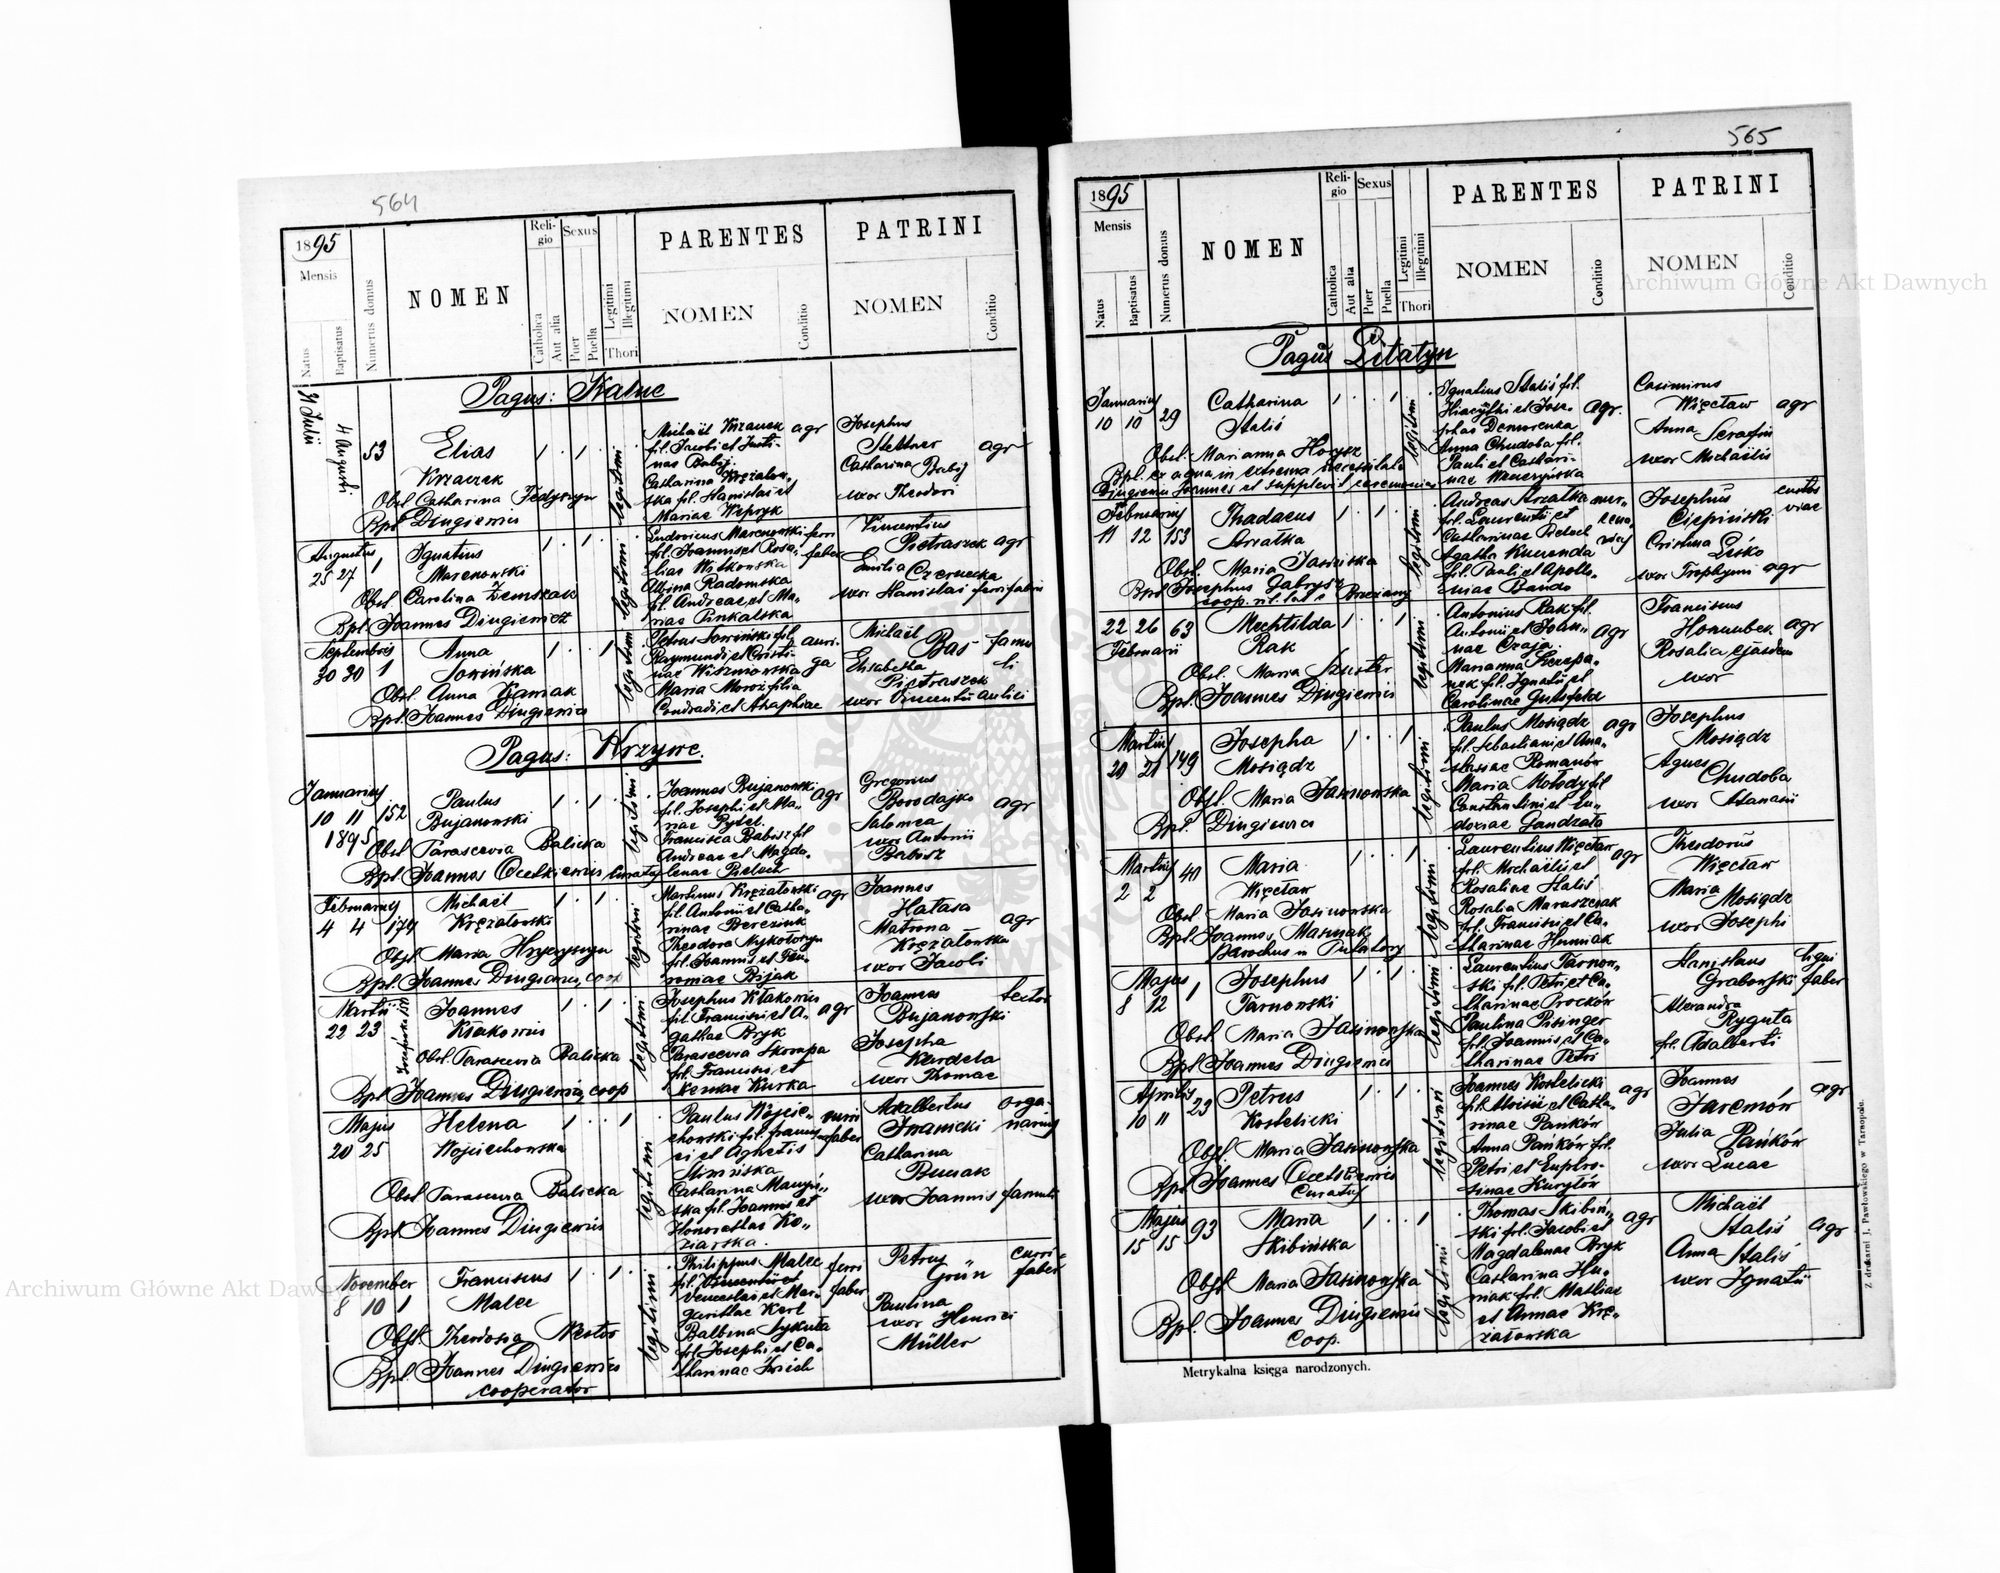 564
1895
Mensis
Natus
Baptisatus
Numerus domus
NOMEN
Religio
Catholica
Aut alia
Sexus
Puer
Puella
Legitimi
Illegitimi
Thori
PARENTES
NOMEN
Conditio
PATRINI
NOMEN
Conditio
Pagus: Kalne
31 Julii
4 Augusti
53
Elias
Krzaczek
Obst Catharina Fedyszyn
Bpt Dzugiewicz
legitimi
Michaël Krzaczek agr
fil. Jacobi et Justi-
nae Babij
Catharina Krężałow-
ska fil. Stanislai et
Mariae Wepryk
Josephus
Stettner agr
Catharina Babij
uxor Theodori
Augustus
25 27 1
Ignatius
Marcnowski
Obst. Carolina
Bpt. Joannes Dzugiewicz
legitimi
Ludovicus Marcnowski ferri
fil. Joannis et Rosa- faber
liae Witkowska
Albina Radomska
fil. Andreae et Ma-
riae Pinkalska
Vincentius
Pietraszek agr
Emilia Czernecka
uxor Stanislai ferri fabri
Septembris
30 30 1
Anna
Sowińska
Obst Anna
Bpt. Joannes Dzugiewicz
legitimi
Petrus Sowiński fil. auri-
Raymundi et Cristi- ga
nae Wiszniowska
Maria Moroz filia
Condradi et Ahaphiae
Michaël
Bas famu-
Elisabetha li
Pietraszek
uxor Vincentii aulici
Pagus: Krzywe.
Januarius
10 11 152
1895
Paulus
Bujanowski
Obst Parascevia Balicka
Bpt Joannes Ocetkiewicz Curatus
legitimi
Joannes Bujanowski
fil. Josephi et Ma- agr
riae Pytel.
Francisca Babisz fil
Andreae et Magda-
lenae Pietuch
Gregorius
Borodajko agr
Salomea
uxor Antonii
Babisz
Februarius
4 4 174
Michaël
Krężałowski
Obst Maria Hryczyszyn
Bpt Joannes Dzugiewicz, coop
legitimi
Martinus Krężałowski agr
fil. Antonii et Catha-
rinae Berezink
Theodora Mykołoryn
fil. Joannis et Feu-
roniae Bijak
Joannes
Hałasa
Matrona agr
Krężałowska
uxor Jacobi
Martii
22 23
Joannes
Kłakowicz
Obst. Parascevia Balicka
Bpt Joannes Dzugiewicz, coop
legitimi
Josephus Kłakowicz
fil Francisci et A- agr
gathae Bryk
Parascevia Skorupa
fil. Francisci et
Xeniae Kurka
Joannes tector
Bujanowski
Josepha
Kurdela
uxor Thomae
Majus
20 25
Helena
Wojciechowska
Obst Parascevia Balicka
Bpt Joannes Dzugiewicz
legitimi
Paulus Wojcie-
chowski fil. francis- faber
ci et Agnetis
Catharina
ska fil. Joannis et
Honorathae Ko-
ziarska.
Adalbertus orga-
Iwanicki narius
Catharina
Buczak
uxor Joannis famuli
November
8 10 1
Franciscus
Malec
Obst. Theodosia Nestor
Bpt. Joannes Dzugiewicz
cooperator
legitimi
Philippus Malec ferri
fil. Vincentii et faber
Venceslai et Mar-
garithae Kerl
Balbina Sykuła
fil. Josephi et Ca-
tharinae
Petrus curri-
Grün faber
Paulina
uxor Henrici
Müller
565
1895
Mensis
Natus
Baptisatus
Numerus domus
NOMEN
Religio
Catholica
Aut alia
Sexus
Puer
Puella
Legitimi
Illegitimi
Thori
PARENTES
NOMEN
Conditio
PATRINI
NOMEN
Conditio
Pagus Litatyn
Januarius
10 10 29
Catharina
Staliś
Obst. Marianna Horysz
Bpt. ex aqua in extrema necessitate
Dzugiewicz Joannes et supplevit ceremonias
legitimi
Ignatius Staliś fil.
Hiacythi et Jose- agr.
phae Demorenka
Anna Chudoba fil.
Pauli et Cathari-
nae
Casimirus
Więcław agr
Anna Serafin
uxor Michaëlis
Februarius
11 12 153
Thadaeus
Strzałka
Obst. Maria Jasińska
Bpt Josephus Gabrysz
coop. rit. lat i Brzeżany
legitimi
Andreas Strzałka mer-
fil. Laurentii et cena-
Catharinae Pietuch rius
Agatha Kunanda
fil. Pauli et Apollo-
niae Bando
Josephus custos
Ciepiński viae
Cristina
Leśko
uxor Trophymi agr
22 26 63
Februarii
Mechtilda
Rak
Obst. Maria Szuster
Bpt. Joannes Dzugiewicz
legitimi
Antonius Rak fil.
Antonii et Joan- agr
nae Czaja
Marianna Szczepa-
niak fil. Ignatii et
Carolinae
Franciscus
agr
Rosalia ejusdem
uxor
Martius
20 21 149
Josepha
Mosiądz
Obst. Maria Jasinowska
Bpt. Dzugiewicz
legitimi
Paulus Mosiądz agr
fil. Sebastiani et Ana-
stasiae Romanów
Maria Mołody fil
Constantini et Eu-
doxiae Gandzała
Josephus
Mosiądz
Agnes
Chudoba
uxor Atanasii
Martius
2 2 40
Maria
Więcław
Obst Maria Jasinowska
Bpt Joannes Maszczak
Parochus in Puławy
legitimi
Laurentius Więcław
fil. Michaëlis et agr
Rosaliae Staliś
Rosalia Maruszczak
fil. Francisci et Ca-
tharinae Huniak
Theodorus
Więcław
Maria
Mosiądz
uxor Josephi
Majus
8 12 1
Josephus
Tarnowski
Obst Maria Jasinowska
Bpt Joannes Dzugiewicz
legitimi
Laurentius Tarnow-
ski fil. Petri et Ca-
tharinae Proćków
Paulina Pisinger
fil. Joannis et Ca-
tharinae Petri
Stanislaus ligni
Grabowski faber
Alexandra
Ryguta
fil. Adalberti
Aprilis
10 11 23
Petrus
Kostelicki
Obst. Maria Jasinowska
Bpt Joannes Ocetkiewicz
Curatus
legitimi
Joannes Kostelicki
fil. Aloisii et Catha- agr
rinae Pańków
Anna Pańków fil.
Petri et Euphro-
sinae Kurytów
Joannes
Jaremów agr
Julia
Pańków
uxor Lucae
Majus
15 15 93
Maria
Skibińska
Obst. Maria Jasinowska
Bpt. Joannes Dzugiewicz
Coop.
legitimi
Thomas Skibiń-
ski fil. Jacobi et agr
Magdalenae Bryk
Catharina Hu-
niak fil. Mathiae
et Annae Krę-
żałowska
Michaël
Staliś agr
Anna Staliś
uxor Ignatii
Metrykalna księga narodzonych.
Z drukarni J. Pawłowskiego w Tarnopolu.
Archiwum Główne Akt Dawnych
Archiwum Główne Akt Dawnych